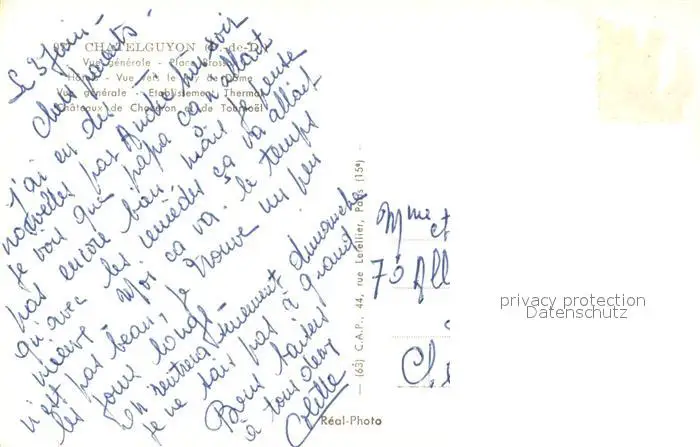 CHATELGUYON (P.-de-D.)
Vue générale - Place Brosson
Vue vers le Puy de Dôme
Vue générale - Etablissement Thermal
Châteaux de Chazeron et de Tournoël
Le 3 Juin -
Chers parents -
J'ai eu des
nouvelles par André hier soir
je vois que papa ça n'allait
pas encore bien, mais je pense
qu'avec les remèdes ça va allait
mieux. Moi ça va. le temps
n'est pas beau, je trouve un peu
les jours longs -
On rentrera sûrement dimanche
je ne sais pas à quand
Bons baisers
à tous deux
Colette
(63) C.A.P., 44, rue Letellier, Paris (15e)
Réal-Photo
Mme et
73 All
privacy protection
Datenschutz